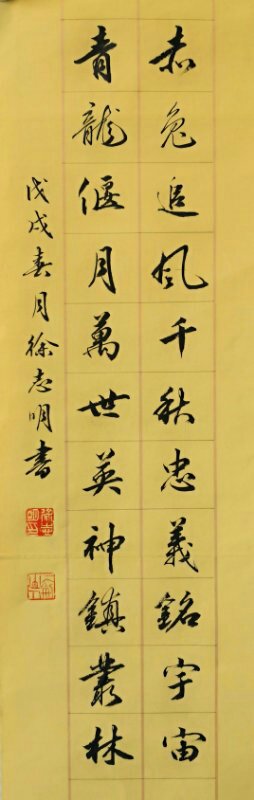 赤兔追风千秋忠義銘宇宙
青龍偃月萬世英神鎮叢林
戊戌春月徐志明書